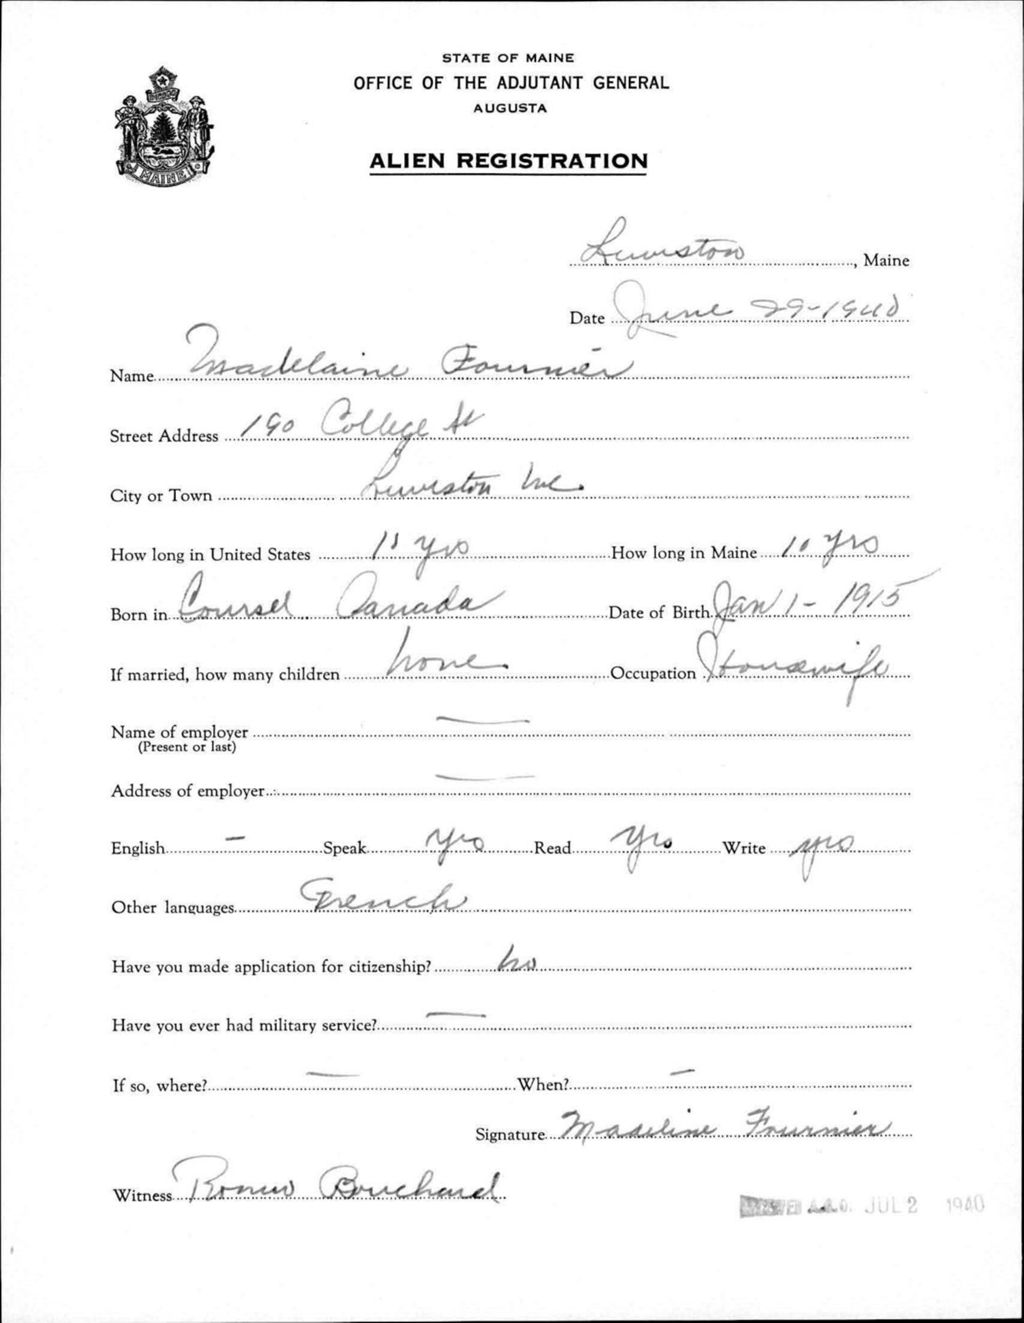 STATE OF MAINE
OFFICE OF THE ADJUTANT GENERAL
AUGUSTA
MAINE
ALIEN REGISTRATION
Lewiston, Maine
Date June 29-1940
Name Madelaine Fournier
Street Address 190 College St
City or Town Lewiston Me.
How long in United States yrs How long in Maine 10 yrs
Born in Canada Date of Birth Jan 1-1915
If married, how many children none. Occupation Housewife
Name of employer —
(Present or last)
Address of employer —
English — Speak yes Read yes Write yes
Other languages French
Have you made application for citizenship? no
Have you ever had military service? —
If so, where? — When? —
Signature Madeline Fournier
Witness Romeo Bouchard
A.G.O. JUL 2 1940